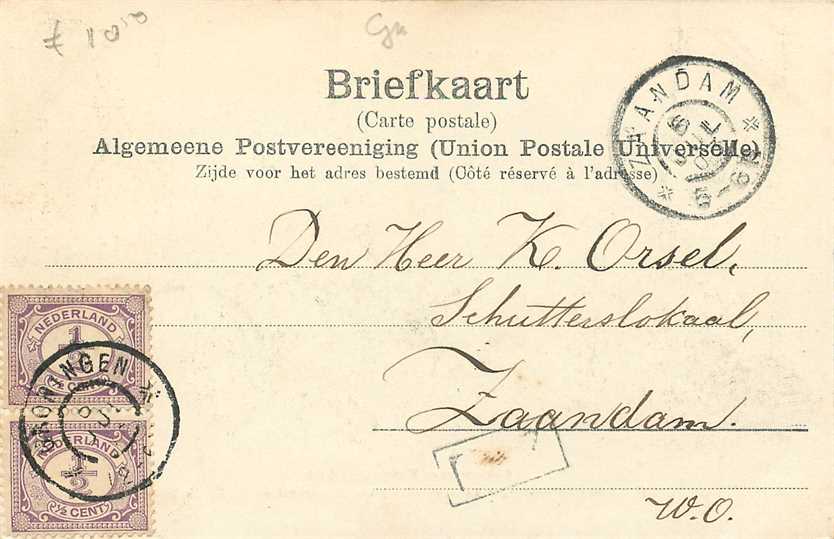 Briefkaart
(Carte postale)
Algemeene Postvereeniging (Union Postale Universelle)
Zijde voor het adres bestemd (Côté réservé à l'adresse)
ZAANDAM
Den Heer K. Orsel,
Schutterslokaal,
Zaandam.
W.O.
NEDERLAND
1/2
GRONINGEN
NEDERLAND
1/2
(½ CENT)